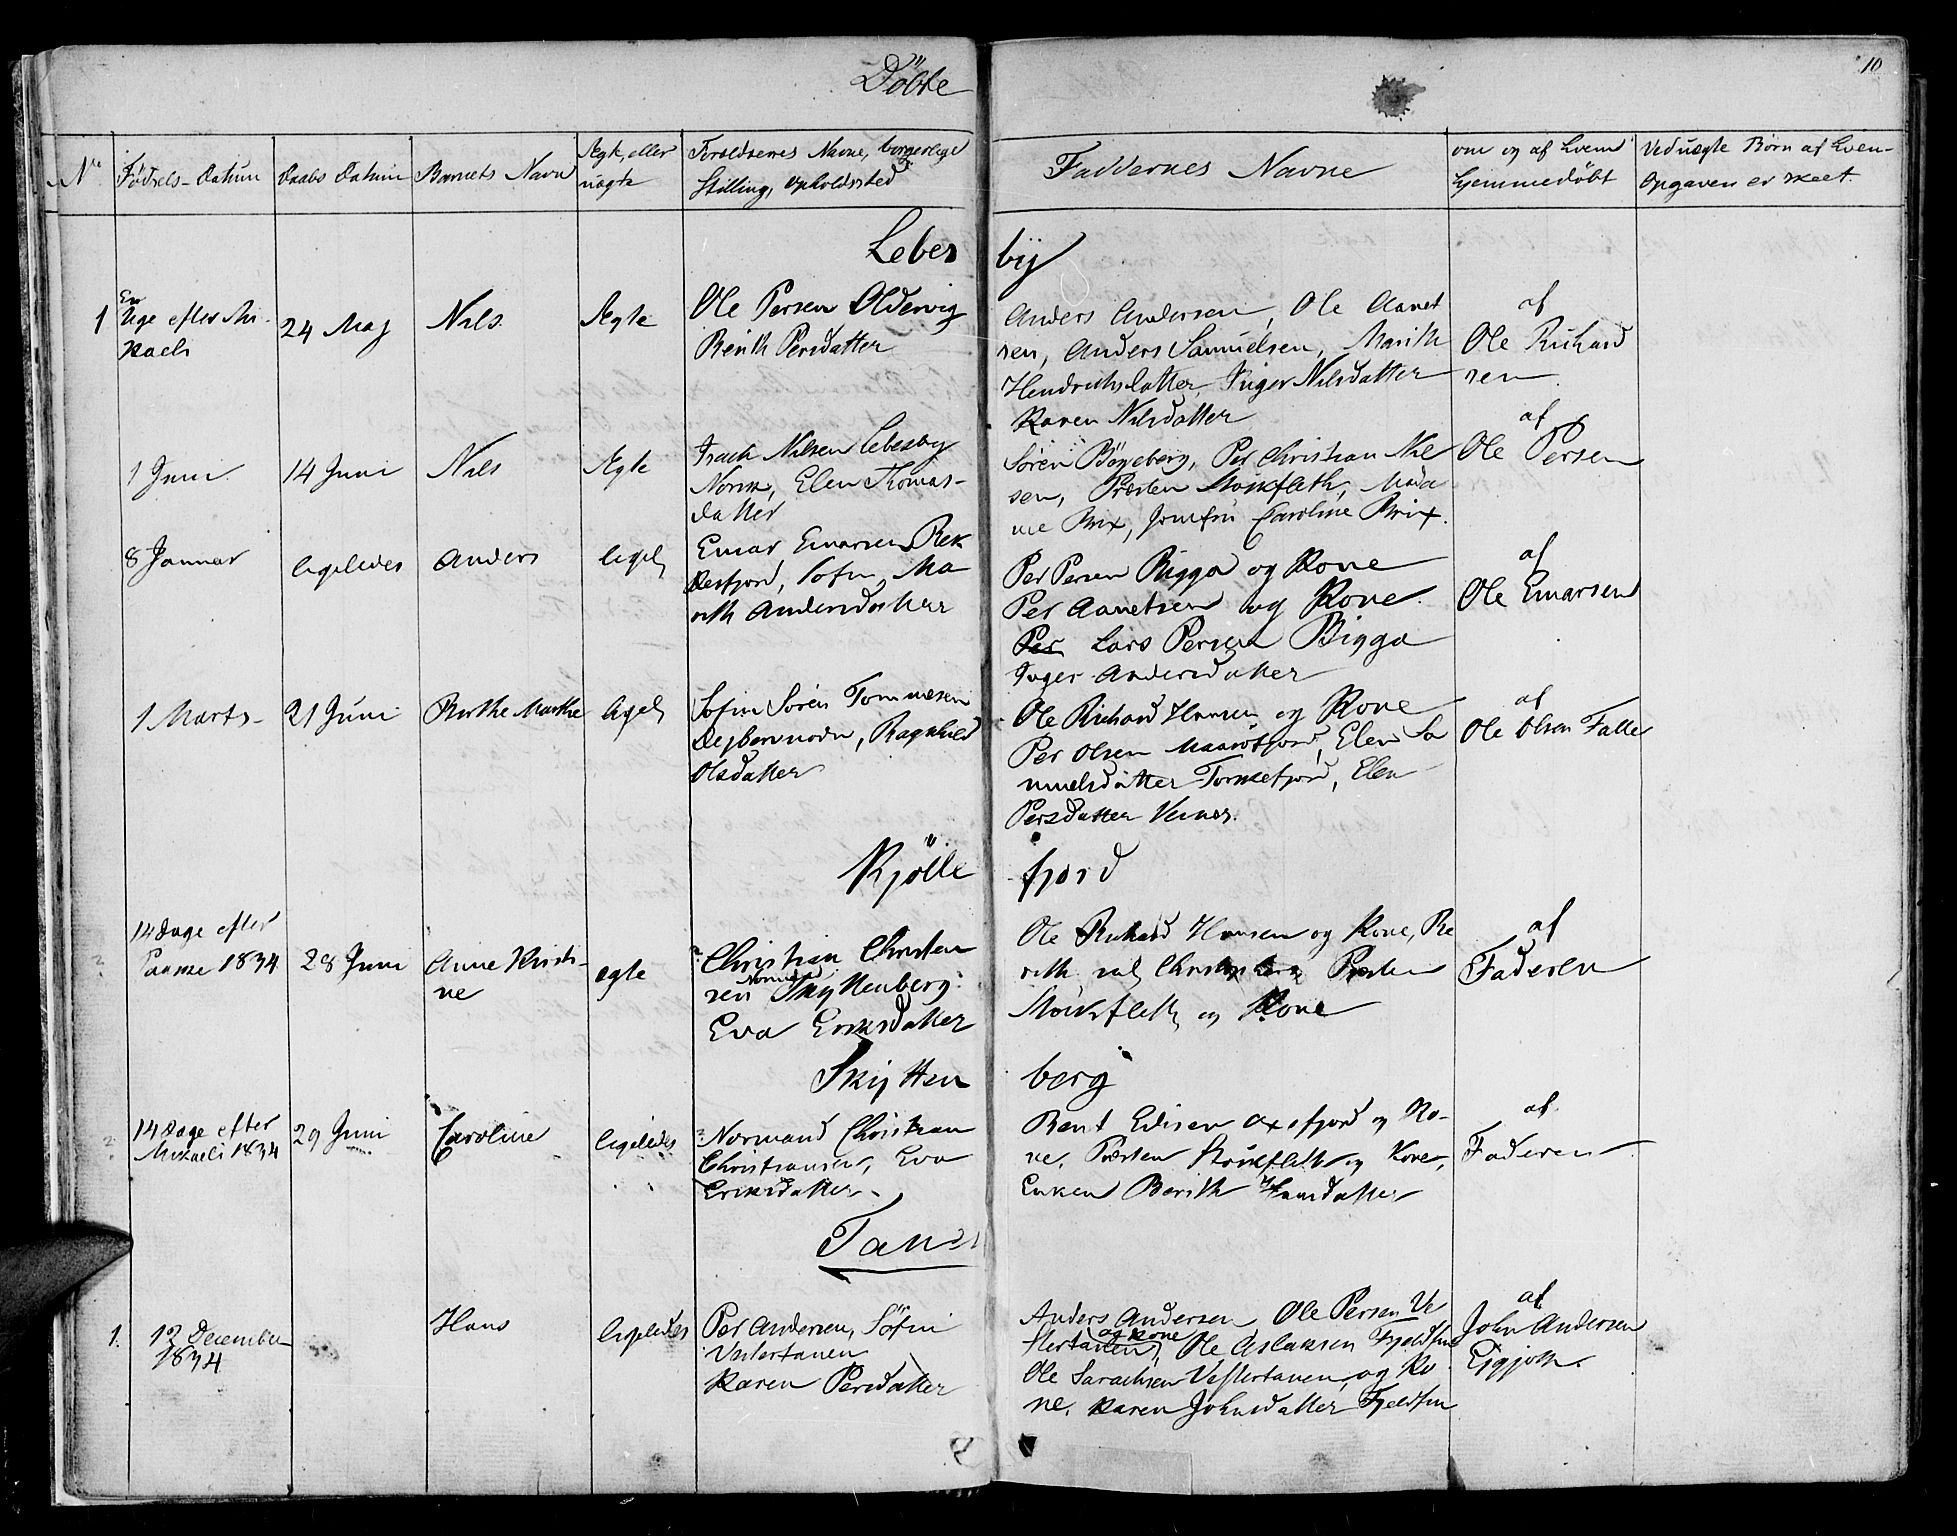 Döbte
10
No
Födsels-Datum
Daabs Datum
Barnets Navn
Ægte, eller
uægte
Forældrenes Navne, borgerlige
Stilling, Opholdssted
Faddernes Navne
om og af hvem
hjemmedøbt
Ved uægte Børn af hvem
Opgaven er skeet.
Lebes
by
1
En
Uge efter Mi-
kaeli
24 Maj
Nils
Ægte
Ole Persen Oldervig
Berith Persdatter
Anders Andersen, Ole Aanet
sen, Anders Samuelsen, Marith
Hendrichsdatter, Inger Nilsdatter
Karen Nilsdatter
af
Ole Richard
sen
1 Juni
14 Juni
Nils
Ægte
Isach Nilsen Lebesby
Norsk, Elen Thomas-
datter
Sören Bögeberg, Per Christian Niel
sen, Præsten Stockfleth, Mada
me Brix, Jomfru Caroline Brix.
af
Ole Persen
8 Januar
ligeledes
Anders
ligel
Einar Einarsen
Söfin, Ma
rith Andersdatter
Per Persen Bigga og Kone
Per Aanetsen og Kone
Per Lars Persen Bigga
Inger Andersdatter
af
Ole Einarsen
1 Marts
21 Juni
Birthe Marthe
ligel
Söfin Sören Tommesen
Ragnhild
Olsdatter
Ole Richard Hansen og Kone
Per Olsen Elen Sa
muelsdatter Torskefjord, Elen
Persdatter
af
Ole Olsen Falle
Kjölle
fjord
14 Dage efter
Paaske 1834
28 Juni
Anne Kirsti-
ne
ægte
Christian Christen
sen Normand Skyttenberg
Eva Eriksdatter
Ole Richard Hansen og Kone, Be
rith Præsten
Stockfleth og Kone
af
Faderen
Skytten
berg
14 Dage efter
Mikaeli 1834
29 Juni
Caroline
ligeledes
Normand Christian
Christiansen, Eva
Eriksdatter
Bent Edisen Axefjord og Ko-
ne, Præsten Stockfleth og Kone,
Enken Berith Hansdatter
af
Faderen
Tanen
1.
12 December
1834
Hans
ligeledes
Per Andersen, Söfin
Vestertanen
Karen Persdatter
Anders Andersen Ole Persen Ve
stertanen og Kone, Ole Aslaksen Fjeldfin
Ole Sarachsen Vestertanen og Ko
ne, Karen Johnsdatter Fjeldfin
af
John Andersen